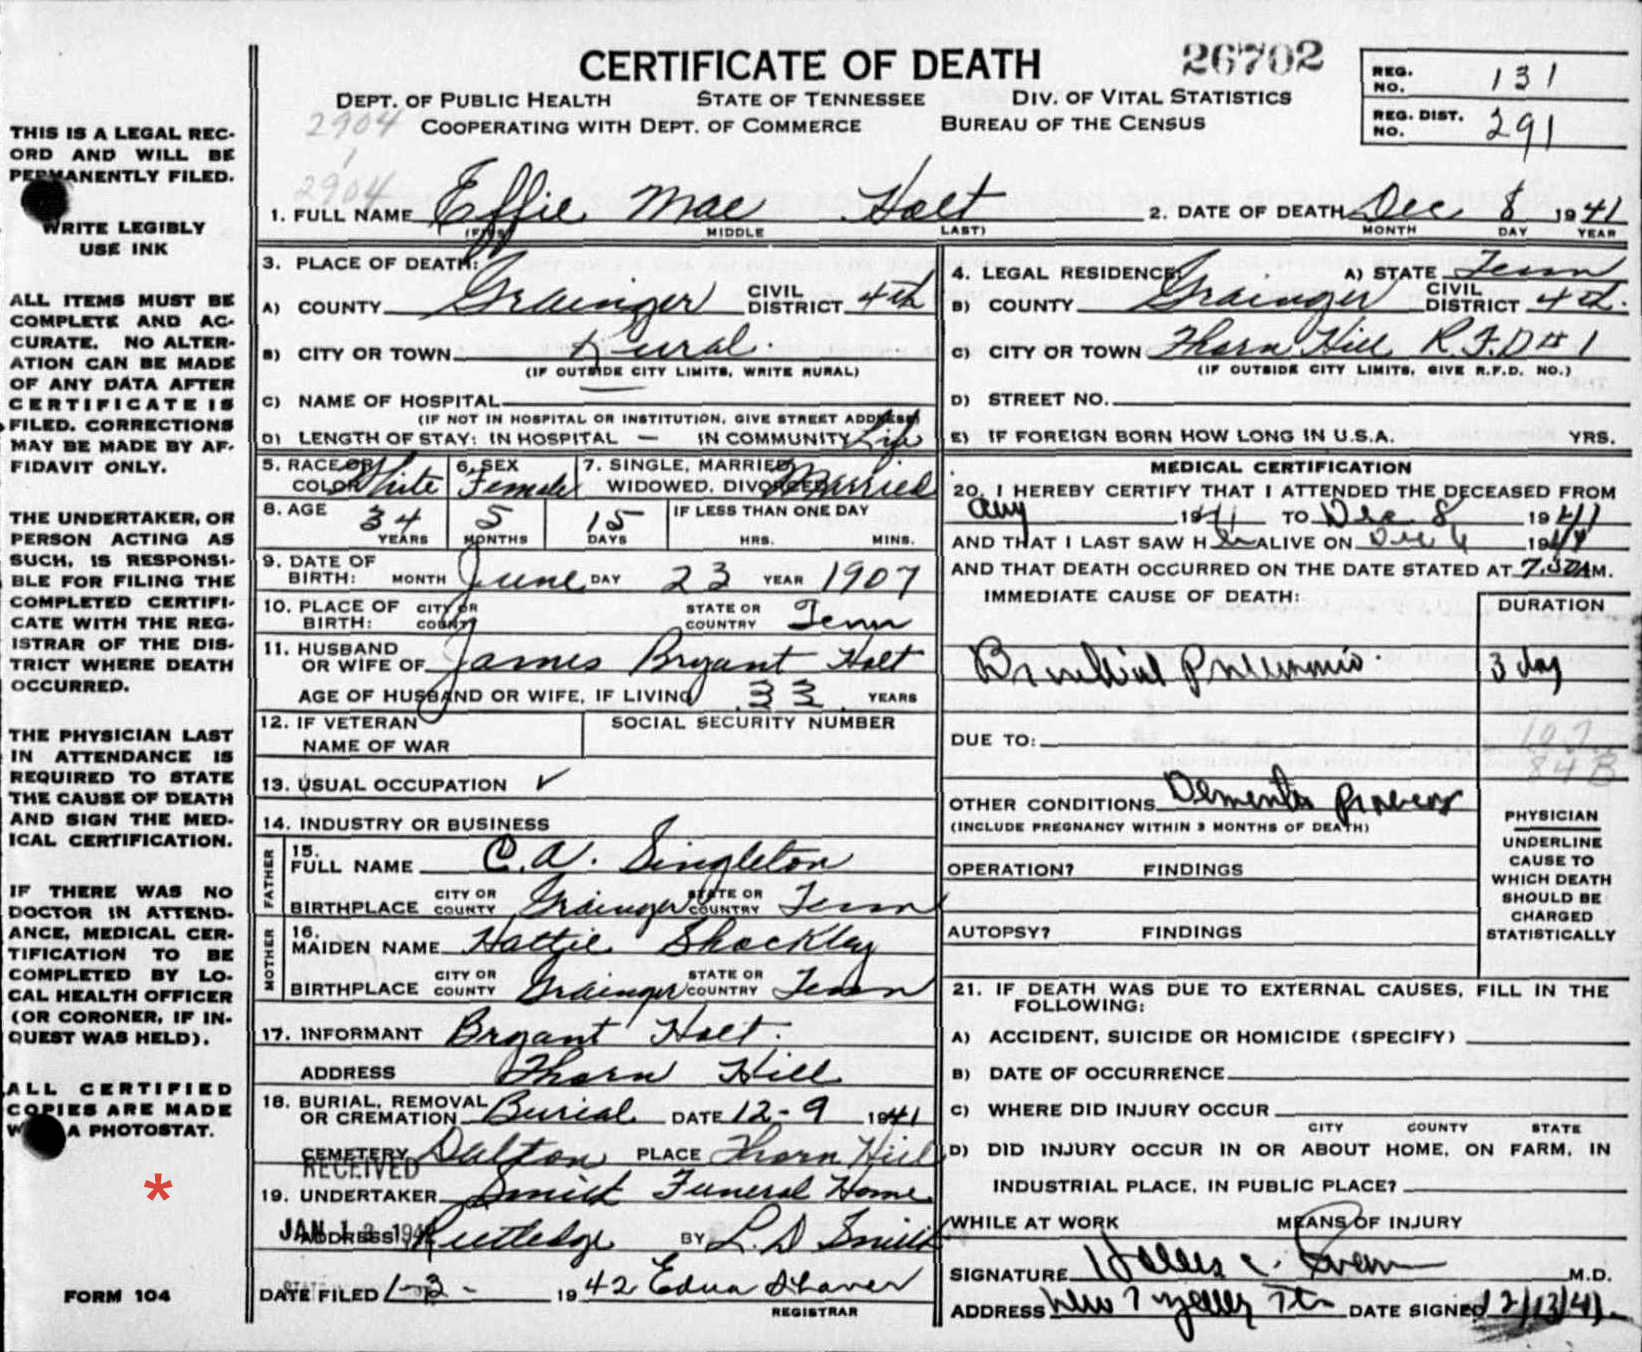 CERTIFICATE OF DEATH 26702
DEPT. OF PUBLIC HEALTH STATE OF TENNESSEE DIV. OF VITAL STATISTICS
COOPERATING WITH DEPT. OF COMMERCE BUREAU OF THE CENSUS
2904
1
2904
REG. NO. 131
REG. DIST. NO. 291
THIS IS A LEGAL REC-
ORD AND WILL BE
PERMANENTLY FILED.
WRITE LEGIBLY
USE INK
ALL ITEMS MUST BE
COMPLETE AND AC-
CURATE. NO ALTER-
ATION CAN BE MADE
OF ANY DATA AFTER
CERTIFICATE IS
FILED. CORRECTIONS
MAY BE MADE BY AF-
FIDAVIT ONLY.
THE UNDERTAKER, OR
PERSON ACTING AS
SUCH, IS RESPONSI-
BLE FOR FILING THE
COMPLETED CERTIFI-
CATE WITH THE REG-
ISTRAR OF THE DIS-
TRICT WHERE DEATH
OCCURRED.
THE PHYSICIAN LAST
IN ATTENDANCE IS
REQUIRED TO STATE
THE CAUSE OF DEATH
AND SIGN THE MED-
ICAL CERTIFICATION.
IF THERE WAS NO
DOCTOR IN ATTEND-
ANCE, MEDICAL CER-
TIFICATION TO BE
COMPLETED BY LO-
CAL HEALTH OFFICER
(OR CORONER, IF IN-
QUEST WAS HELD).
ALL CERTIFIED
COPIES ARE MADE
A PHOTOSTAT.
*
FORM 104
1. FULL NAME Effie Mae Holt 2. DATE OF DEATH Dec 8 1941
(FIRST) MIDDLE LAST) MONTH DAY YEAR
3. PLACE OF DEATH:
A) COUNTY Grainger CIVIL DISTRICT 4th
B) CITY OR TOWN Rural
(IF OUTSIDE CITY LIMITS, WRITE RURAL)
C) NAME OF HOSPITAL
(IF NOT IN HOSPITAL OR INSTITUTION, GIVE STREET ADDRESS)
D) LENGTH OF STAY: IN HOSPITAL — IN COMMUNITY Life
4. LEGAL RESIDENCE: A) STATE Tenn
B) COUNTY Grainger CIVIL DISTRICT 4th.
C) CITY OR TOWN Thorn Hill R.F.D # 1
(IF OUTSIDE CITY LIMITS, GIVE R.F.D. NO.)
D) STREET NO.
E) IF FOREIGN BORN HOW LONG IN U.S.A. YRS.
5. RACE OR COLOR White 6. SEX Female 7. SINGLE, MARRIED, WIDOWED, DIVORCED Married
8. AGE 34 YEARS 5 MONTHS 15 DAYS IF LESS THAN ONE DAY HRS. MINS.
9. DATE OF BIRTH: MONTH June DAY 23 YEAR 1907
10. PLACE OF BIRTH: CITY OR COUNTY STATE OR COUNTRY Tenn
11. HUSBAND OR WIFE OF James Bryant Holt
AGE OF HUSBAND OR WIFE, IF LIVING 33 YEARS
12. IF VETERAN NAME OF WAR SOCIAL SECURITY NUMBER
13. USUAL OCCUPATION ✓
14. INDUSTRY OR BUSINESS
FATHER
15. FULL NAME C.A. Singleton
BIRTHPLACE CITY OR COUNTY Grainger STATE OR COUNTRY Tenn
MOTHER
16. MAIDEN NAME Hattie Shockley
BIRTHPLACE CITY OR COUNTY Grainger STATE OR COUNTRY Tenn
17. INFORMANT Bryant Holt.
ADDRESS Thorn Hill
18. BURIAL, REMOVAL OR CREMATION Burial DATE 12-9 1941
CEMETERY Dalton PLACE Thorn Hill
RECEIVED
19. UNDERTAKER Smith Funeral Home
ADDRESS Rutledge BY L.D Smith
JAN 194
STATE
DATE FILED 1-3- 1942 Edna Shaver
REGISTRAR
MEDICAL CERTIFICATION
20. I HEREBY CERTIFY THAT I ATTENDED THE DECEASED FROM
Aug 1941 TO Dec 8 1941
AND THAT I LAST SAW H ALIVE ON Dec 19
AND THAT DEATH OCCURRED ON THE DATE STATED AT 7.30 A M.
IMMEDIATE CAUSE OF DEATH: DURATION
Bronchial Pneumonia. 3 day
DUE TO:
107
84B
OTHER CONDITIONS Dementia Praecox
(INCLUDE PREGNANCY WITHIN 3 MONTHS OF DEATH)
OPERATION? FINDINGS
AUTOPSY? FINDINGS
PHYSICIAN
UNDERLINE
CAUSE TO
WHICH DEATH
SHOULD BE
CHARGED
STATISTICALLY
21. IF DEATH WAS DUE TO EXTERNAL CAUSES, FILL IN THE
FOLLOWING:
A) ACCIDENT, SUICIDE OR HOMICIDE (SPECIFY)
B) DATE OF OCCURRENCE
C) WHERE DID INJURY OCCUR
CITY COUNTY STATE
D) DID INJURY OCCUR IN OR ABOUT HOME, ON FARM, IN
INDUSTRIAL PLACE, IN PUBLIC PLACE?
WHILE AT WORK MEANS OF INJURY
SIGNATURE C. M.D.
ADDRESS New Tazewell Tenn DATE SIGNED 12/13/41